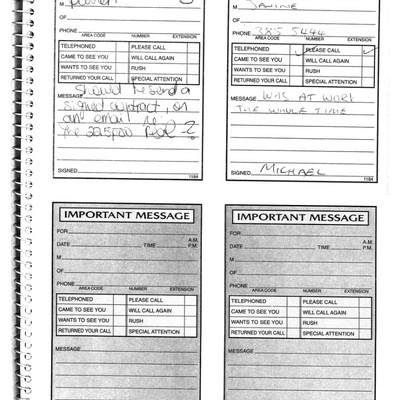 M
OF
PHONE
AREA CODE NUMBER EXTENSION
TELEPHONED PLEASE CALL
CAME TO SEE YOU WILL CALL AGAIN
WANTS TO SEE YOU RUSH
RETURNED YOUR CALL SPECIAL ATTENTION
MESSAGE Should he send a
signed contract, or
an email re
the 225,000 deal-?
SIGNED
1184
M JANINE
OF
PHONE 385 5444
AREA CODE NUMBER EXTENSION
TELEPHONED ✓ PLEASE CALL ✓
CAME TO SEE YOU WILL CALL AGAIN
WANTS TO SEE YOU RUSH
RETURNED YOUR CALL SPECIAL ATTENTION
MESSAGE WAS AT WORK
THE WHOLE TIME
SIGNED MICHAEL
1184
IMPORTANT MESSAGE
FOR
DATE TIME A.M. P.M.
M
OF
PHONE
AREA CODE NUMBER EXTENSION
TELEPHONED PLEASE CALL
CAME TO SEE YOU WILL CALL AGAIN
WANTS TO SEE YOU RUSH
RETURNED YOUR CALL SPECIAL ATTENTION
MESSAGE
IMPORTANT MESSAGE
FOR
DATE TIME A.M. P.M.
M
OF
PHONE
AREA CODE NUMBER EXTENSION
TELEPHONED PLEASE CALL
CAME TO SEE YOU WILL CALL AGAIN
WANTS TO SEE YOU RUSH
RETURNED YOUR CALL SPECIAL ATTENTION
MESSAGE